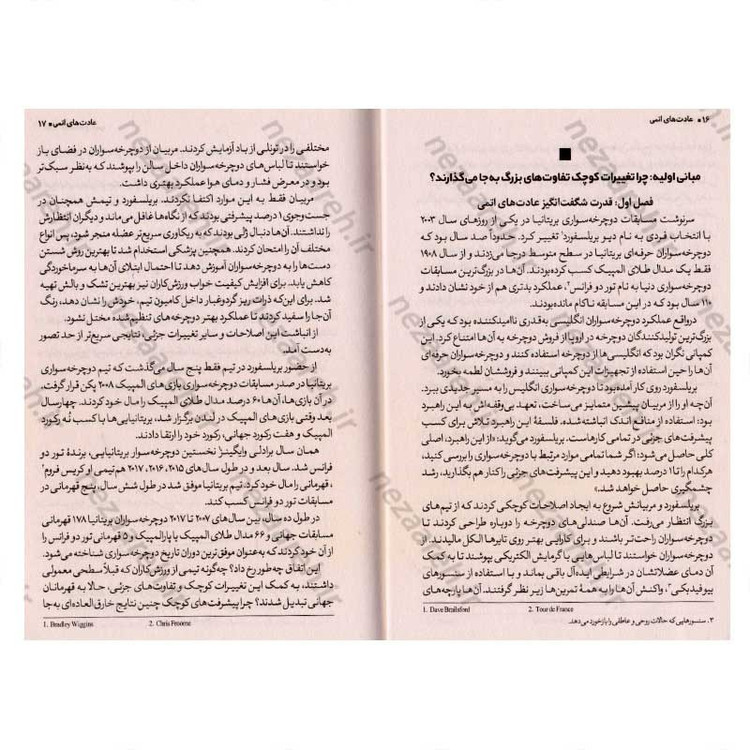 ۱۶ • عادت‌های اتمی
مبانی اولیه: چرا تغییرات کوچک تفاوت‌های بزرگ به‌جا می‌گذارند؟
فصل اول: قدرت شگفت‌انگیز عادت‌های اتمی
سرنوشت مسابقات دوچرخه‌سواری بریتانیا در یکی از روزهای سال ۲۰۰۳
با انتخاب فردی به نام دیو بریلسفورد۱ تغییر کرد. حدوداً صد سال بود که
دوچرخه‌سواران حرفه‌ای بریتانیا در سطح متوسط درجا می‌زدند و از سال ۱۹۰۸
فقط یک مدال طلای المپیک کسب کرده‌بودند. آن‌ها در بزرگ‌ترین مسابقات
دوچرخه‌سواری دنیا به نام تور دو فرانس۲، عملکرد بدتری هم از خود نشان دادند و
۱۱۰ سال بود که در این مسابقه ناکام مانده‌بودند.
درواقع عملکرد دوچرخه‌سواران انگلیسی به‌قدری ناامیدکننده بود که یکی از
بزرگ‌ترین تولیدکنندگان دوچرخه در اروپا از فروش دوچرخه به آن‌ها امتناع کرد. این
کمپانی نگران بود که انگلیسی‌ها از دوچرخه استفاده کنند و دوچرخه‌سواران حرفه‌ای
آن‌ها را حین استفاده از تجهیزات این کمپانی ببینند و فروششان لطمه بخورد.
بریلسفورد روی کار آمده‌بود تا دوچرخه‌سواری انگلیس را به مسیر جدیدی ببرد.
آن‌چه او را از مربیان پیشین متمایز می‌ساخت، تعهد بی‌وقفه‌اش به این راهبرد
بود: استفاده از منافع اندک انباشته‌شده. فلسفهٔ این راهبرد تلاش برای کسب
پیشرفت‌های جزئی در تمامی کارهاست. بریلسفورد می‌گوید: «از این راهبرد، اصلی
کلی حاصل می‌شود: اگر شما تمامی موارد مرتبط با دوچرخه‌سواری را بررسی کنید،
هرکدام را تا ۱ درصد بهبود دهید و این پیشرفت‌های جزئی را کنار هم بگذارید، رشد
چشمگیری حاصل خواهد شد.»
بریلسفورد و مربیانش شروع به ایجاد اصلاحات کوچکی کردند که از تیم‌های
بزرگ انتظار می‌رفت. آن‌ها صندلی‌های دوچرخه را دوباره طراحی کردند تا
دوچرخه‌سواران راحت‌تر باشند و برای کارایی بهتر روی تایرها الکل مالیدند. از
دوچرخه‌سواران خواستند تا لباس‌هایی با گرمایش الکتریکی بپوشند تا به کمک
آن دمای عضلاتشان در شرایطی ایده‌آل باقی بماند و با استفاده از سنسورهای
بیوفیدبکی۳، واکنش آن‌ها را به همهٔ تمرین‌ها زیر نظر گرفتند. آن‌ها پارچه‌های
1. Dave Brailsford 2. Tour de France
۳. سنسورهایی که حالات روحی و عاطفی را بازخورد می‌دهد.
عادت‌های اتمی • ۱۷
مختلفی را در تونلی از باد آزمایش کردند. مربیان از دوچرخه‌سواران در فضای باز
خواستند تا لباس‌های دوچرخه‌سواران داخل سالن را بپوشند که به‌نظر سبک‌تر
بود و در معرض فشار و دمای هوا عملکردی بهتر داشت.
مربیان فقط به این موارد اکتفا نکردند. بریلسفورد و تیمش همچنان در
جست‌وجوی ۱ درصد پیشرفتی بودند که از نگاه‌ها غافل می‌ماند و دیگران انتظارش
را نداشتند. آن‌ها دنبال ژلی بودند که به ریکاوری سریع‌تر عضله منجر شود، پس انواع
مختلف آن را امتحان کردند. همچنین پزشکی استخدام شد تا بهترین روش شستن
دست‌ها را به دوچرخه‌سواران آموزش دهد تا احتمال ابتلای آن‌ها به سرماخوردگی
کاهش یابد. برای افزایش کیفیت خواب ورزش‌کاران نیز بهترین تشک و بالش تهیه
شد. برای این‌که ذرات ریز گردوغبار داخل کامیون تیم، خودش را نشان دهد، رنگ
آن‌جا را سفید کردند تا عملکرد بهتر دوچرخه‌های تنظیم‌شده مختل نشود.
از انباشت این اصلاحات و سایر تغییرات جزئی، نتایجی سریع‌تر از حد تصور
به‌دست آمد.
از حضور بریلسفورد در تیم فقط پنج سال می‌گذشت که تیم دوچرخه‌سواری
بریتانیا در صدر مسابقات دوچرخه‌سواری بازی‌های المپیک ۲۰۰۸ پکن قرار گرفت.
در آن بازی‌ها، آن‌ها ۶۰ درصد مدال طلای المپیک را مال خود کردند. چهارسال
بعد وقتی بازی‌های المپیک در لندن برگزار شد، بریتانیایی‌ها با کسب نُه رکورد
المپیک و هفت رکورد جهانی، رکورد خود را ارتقا دادند.
همان سال برادلی ویگینز۱ نخستین دوچرخه‌سوار بریتانیایی، برندهٔ تور دو
فرانس شد. سال بعد و در طول سال‌های ۲۰۱۵، ۲۰۱۶، ۲۰۱۷ هم‌تیمی او کریس فروم۲
، قهرمانی را مال خود کرد. تیم بریتانیا موفق شد در طول شش سال، پنج قهرمانی در
مسابقات تور دو فرانس کسب کند.
در طول ده سال، بین سال‌های ۲۰۰۷ تا ۲۰۱۷ دوچرخه‌سواران بریتانیا ۱۷۸ قهرمانی
مسابقات جهانی و ۶۶ مدال طلای المپیک یا پارالمپیک و ۵ قهرمانی تور دو فرانس را
از آن خود کردند که به‌عنوان موفق‌ترین دوران تاریخ دوچرخه‌سواری شناخته می‌شود.
این اتفاق چه‌طور رخ داد؟ چه‌گونه تیمی از ورزش‌کاران که قبلاً سطحی معمولی
داشتند، به کمک این تغییرات کوچک و تفاوت‌های جزئی، حالا به قهرمانان
جهانی تبدیل شدند؟ چرا پیشرفت‌های کوچک چنین نتایج خارق‌العاده‌ای به جا
1. Bradley Wiggins 2. Chris Froome